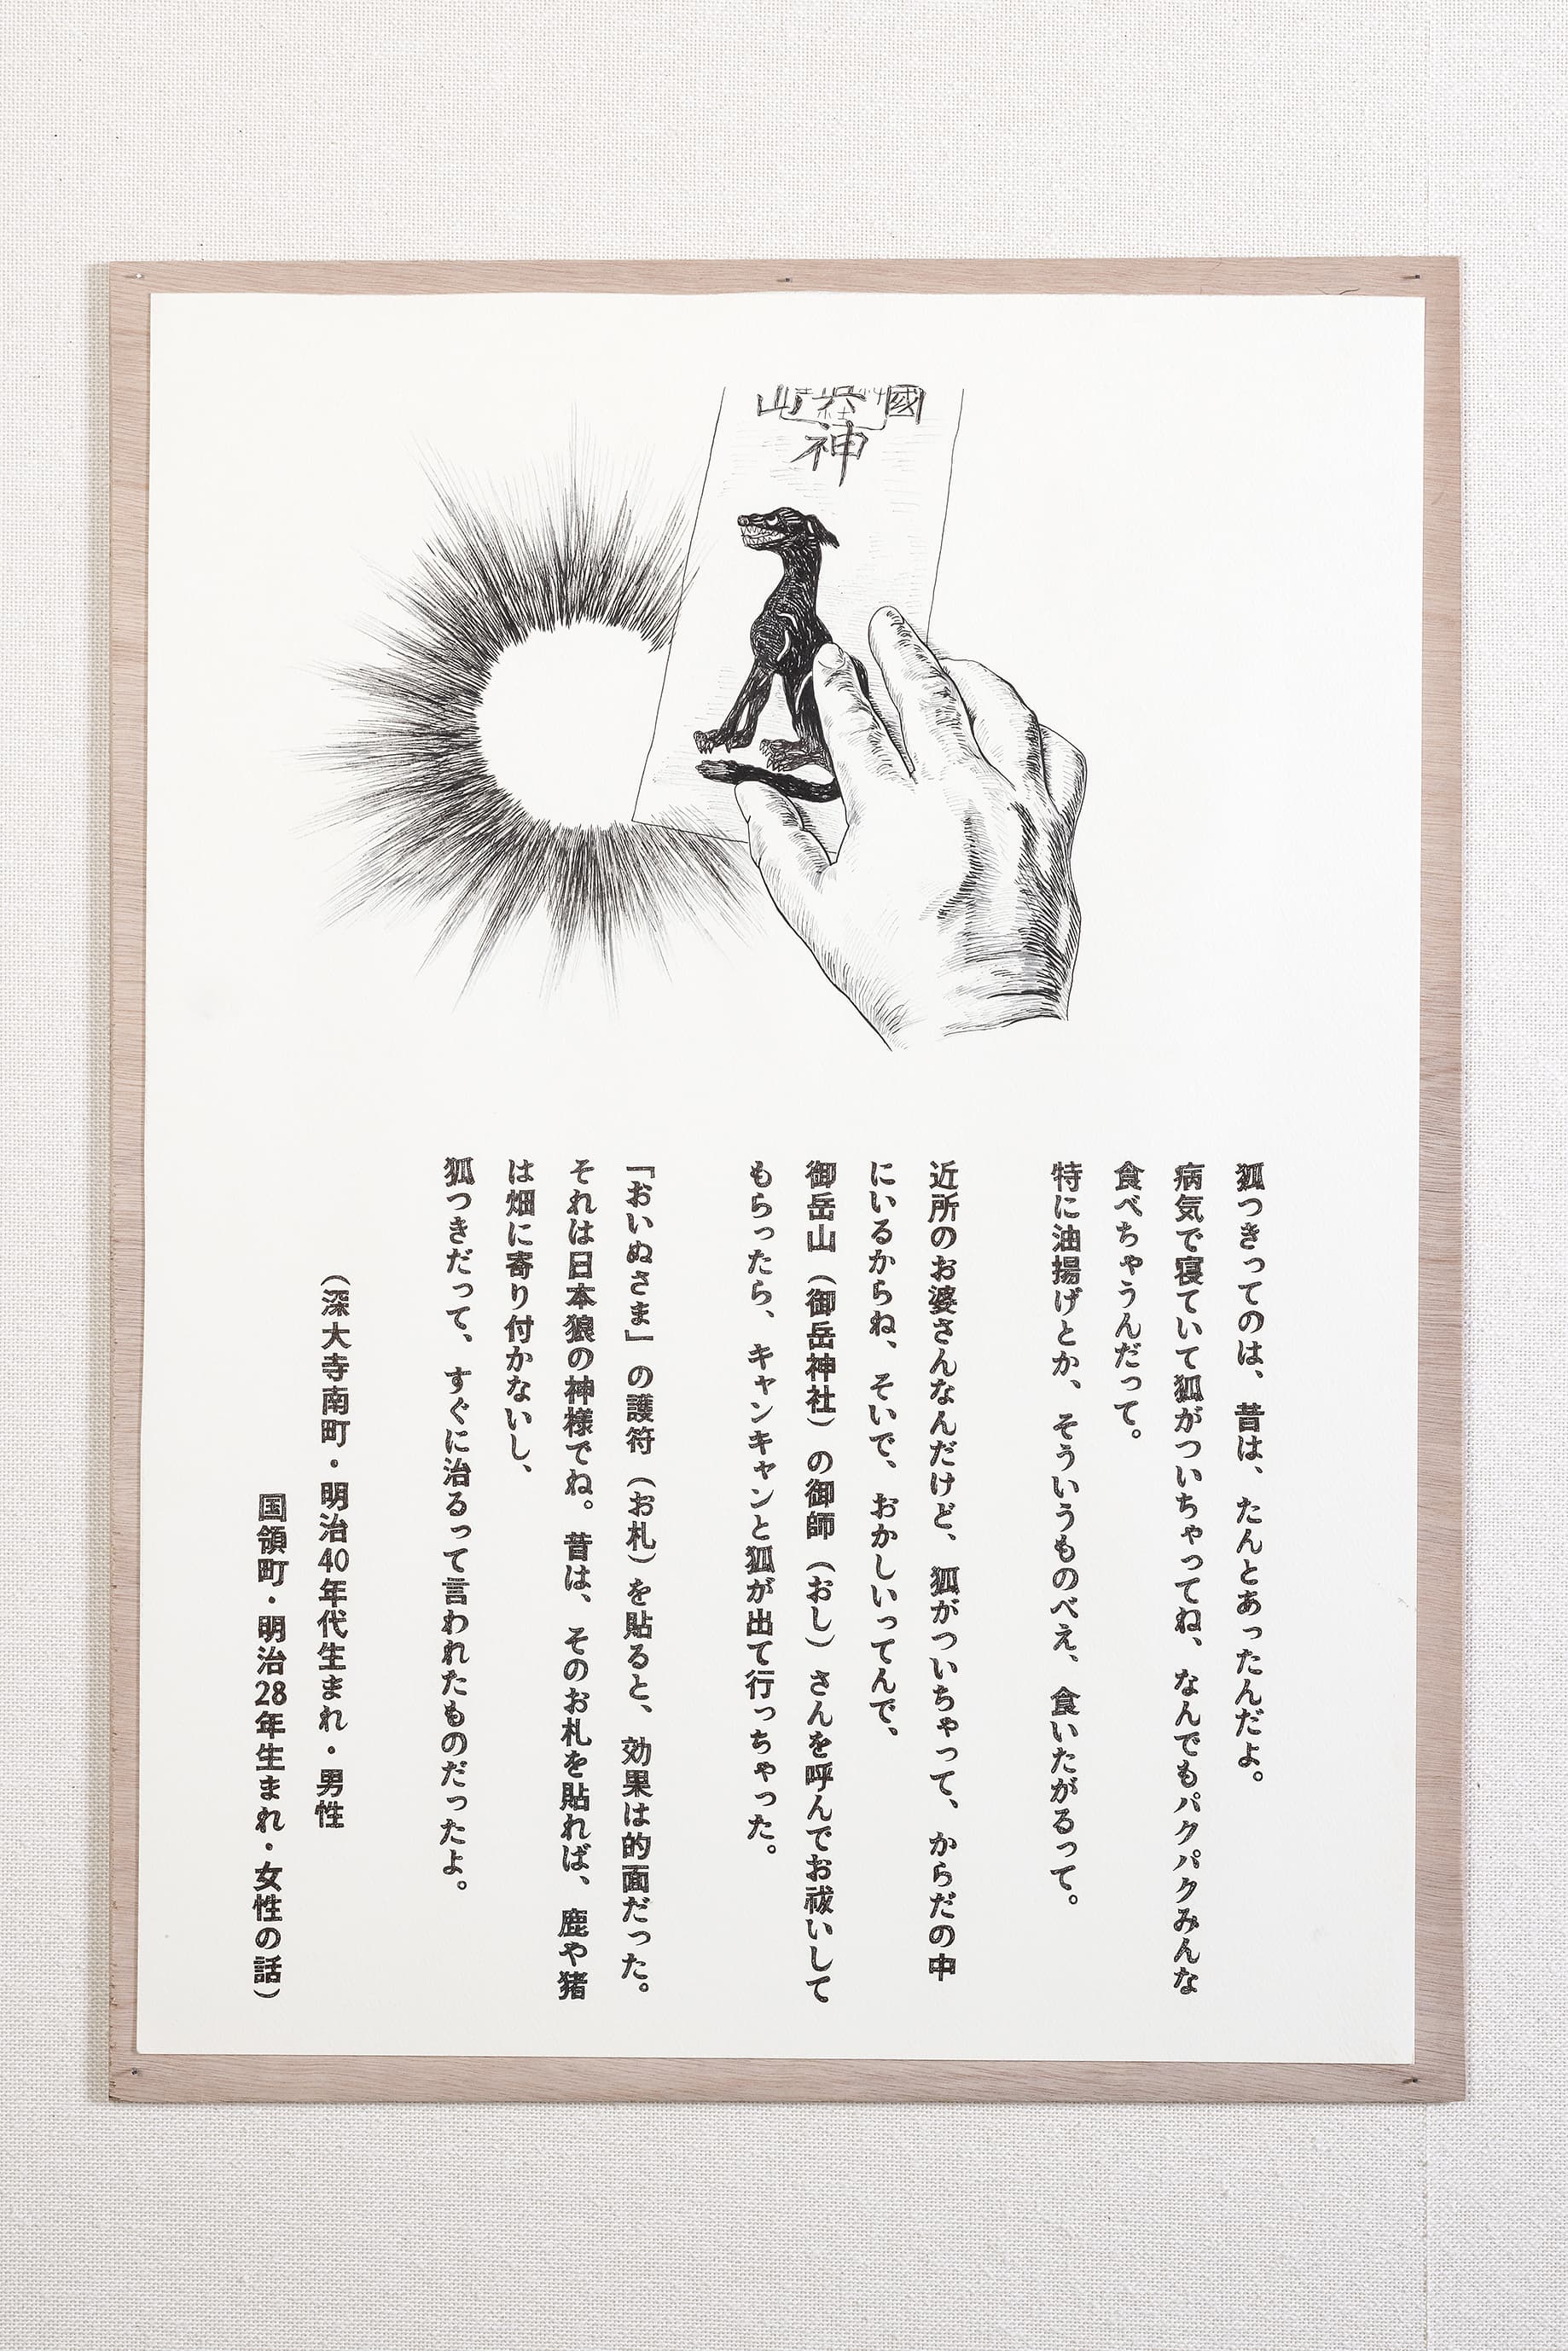 國
山
神
狐つきってのは、昔は、たんとあったんだよ。
病気で寝ていて狐がついちゃってね、なんでもパクパクみんな
食べちゃうんだって。
特に油揚げとか、そういうものべえ、食いたがるって。
近所のお婆さんなんだけど、狐がついちゃって、からだの中
にいるからね、そいで、おかしいってんで、
御岳山（御岳神社）の御師（おし）さんを呼んでお祓いして
もらったら、キャンキャンと狐が出て行っちゃった。
「おいぬさま」の護符（お札）を貼ると、効果は的面だった。
それは日本狼の神様でね。昔は、そのお札を貼れば、鹿や猪
は畑に寄り付かないし、
狐つきだって、すぐに治るって言われたものだったよ。
（深大寺南町・明治40年代生まれ・男性
国領町・明治28年生まれ・女性の話）